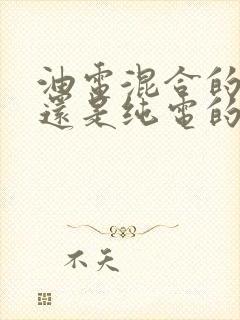 油電混合的
還是純電的
不天